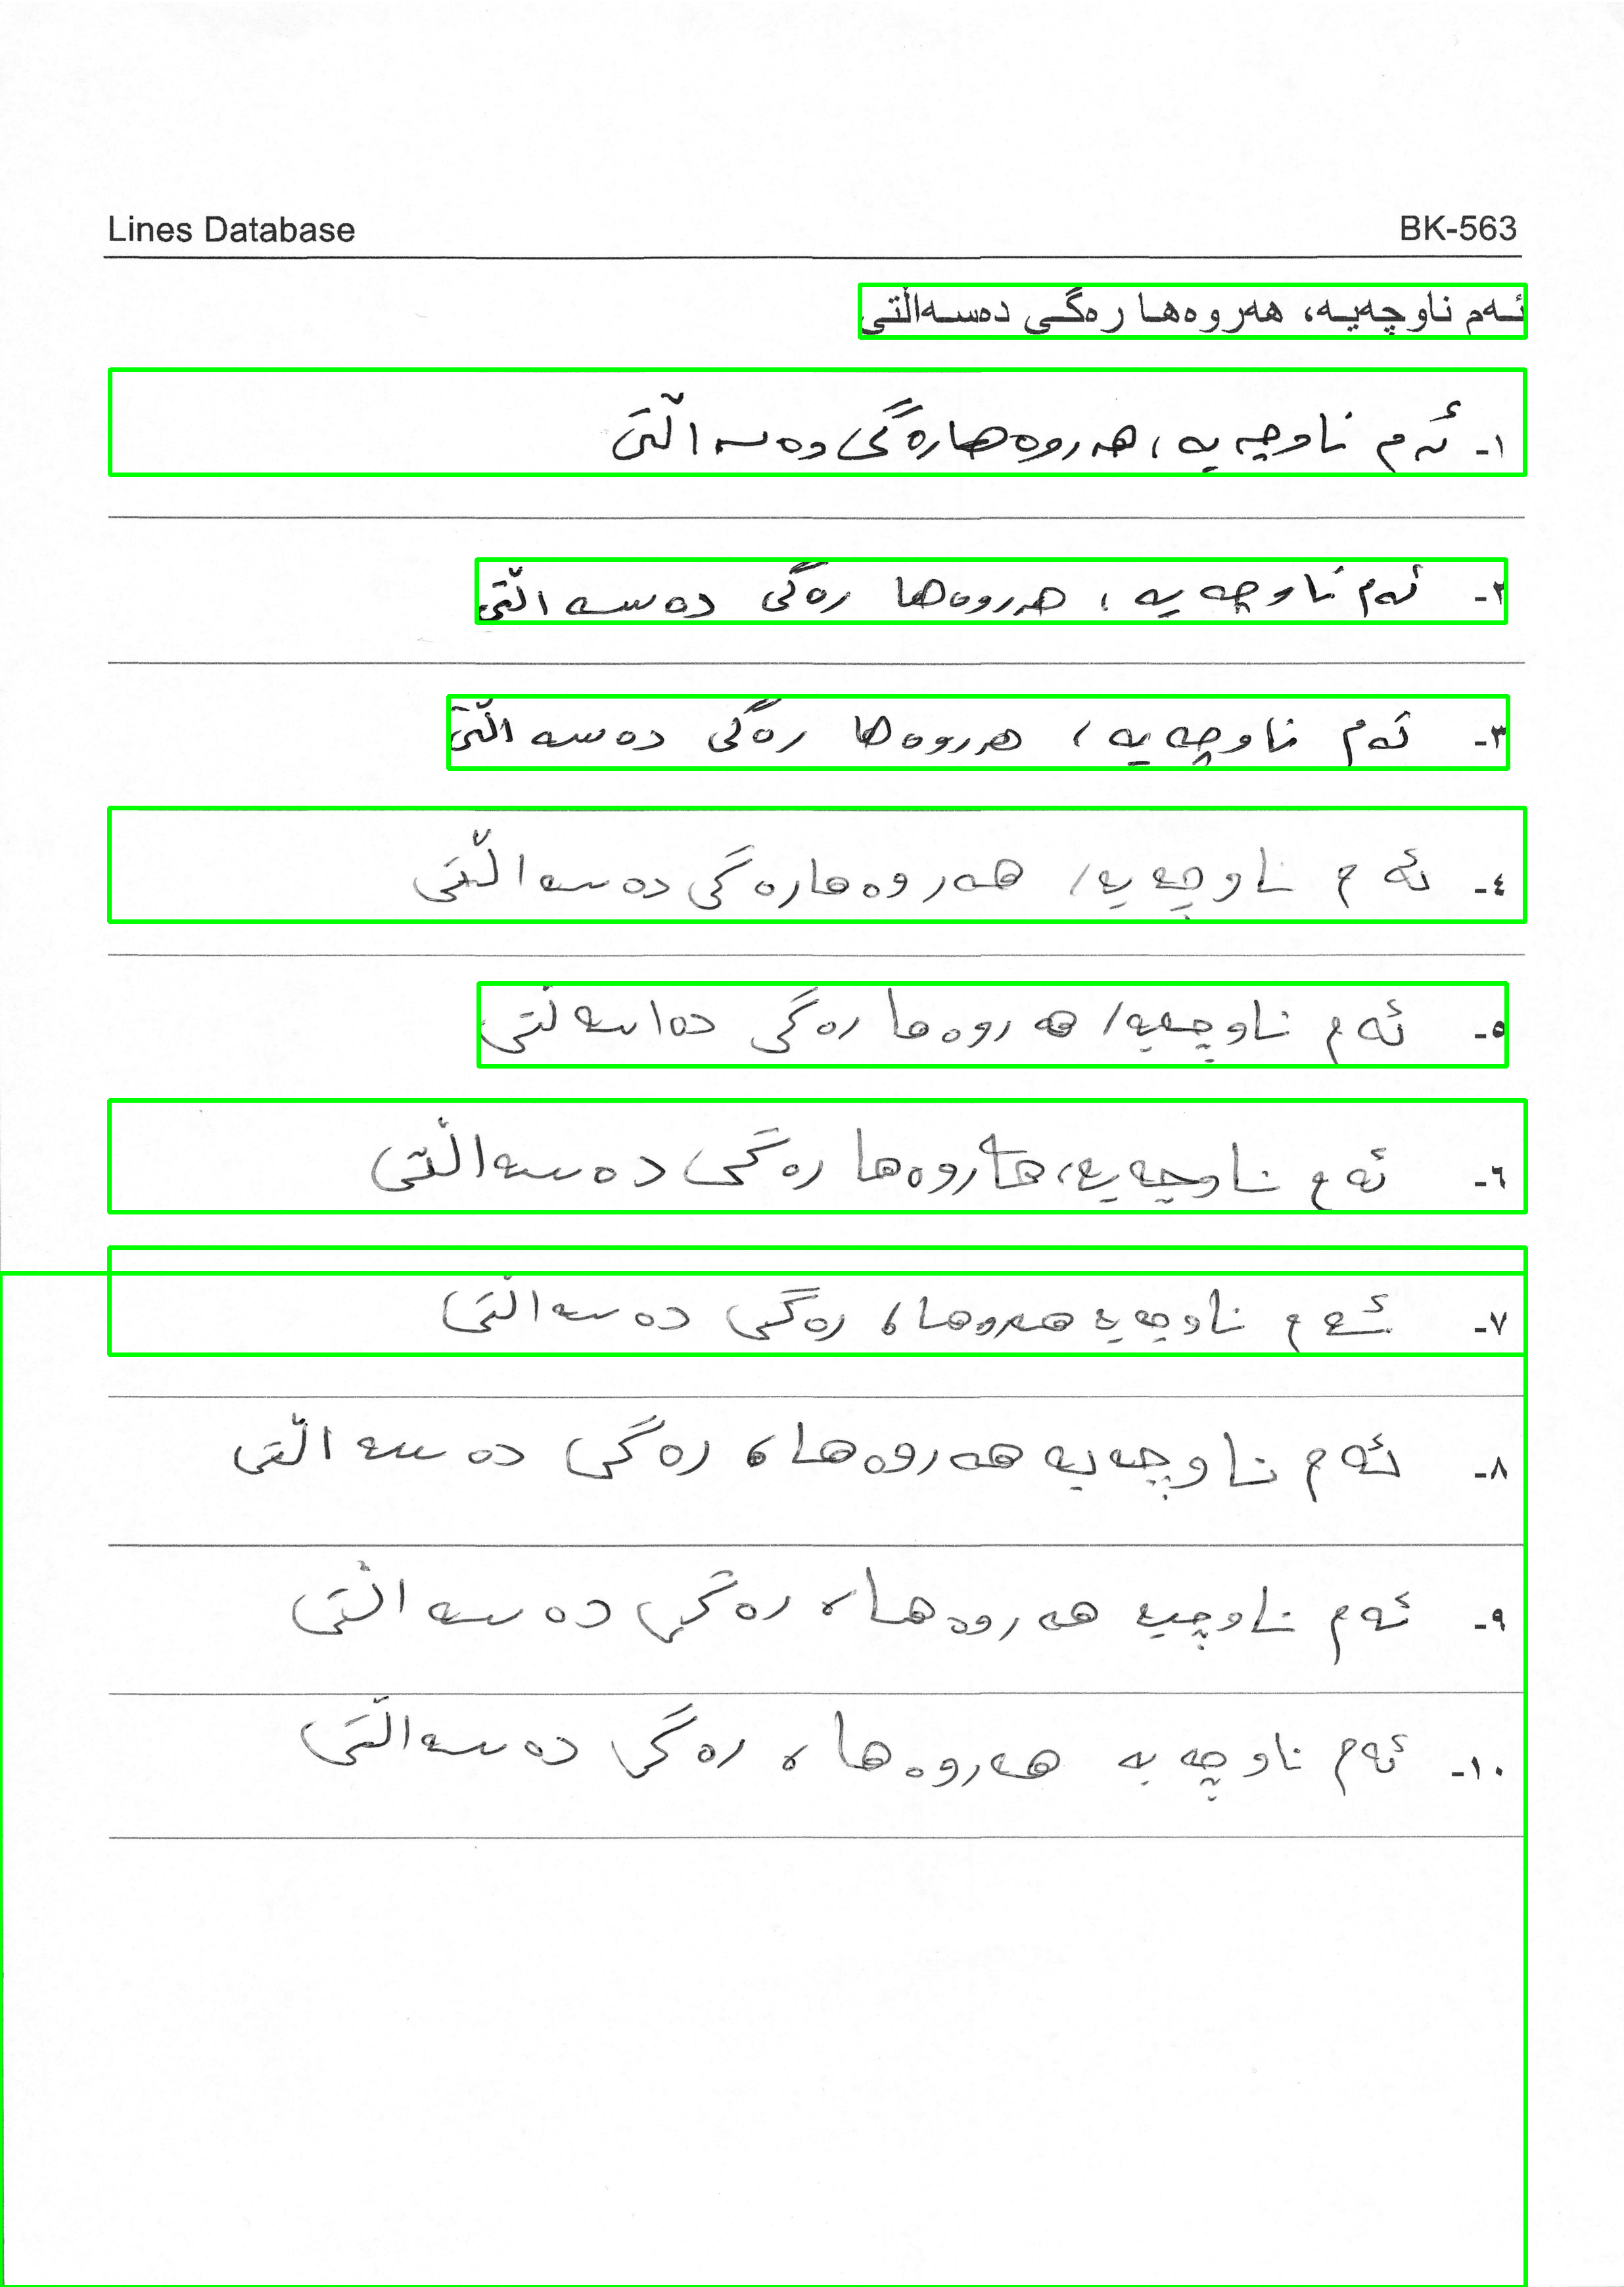 Lines Database BK-563
ئەم ناوچەیە، هەروەها رەگی دەسەاڵتی
١- ئەم ناوچەیە، هەروەها رەگی دەسەاڵتی
٢- ئەم ناوچەیە، هەروەها رەگی دەسەاڵتی
٣- ئەم ناوچەیە، هەروەها رەگی دەسەاڵتی
٤- ئەم ناوچەیە/ هەروەها رەگی دەسەاڵتی
٥- ئەم ناوچەیە/ هەروەها رەگی دەاسەڵتی
٦- ئەم ناوچەیە، هەروەها رەگی دەسەاڵتی
٧- ئەم ناوچەیە هەروها، رەگی دەسەاڵتی
٨- ئەم ناوچەیە هەروەها، رەگی دەسەاڵتی
٩- ئەم ناوچیە هەروەها، رەگی دەسەاڵتی
١٠- ئەم ناوچەیە هەروەها، رەگی دەسەاڵتی